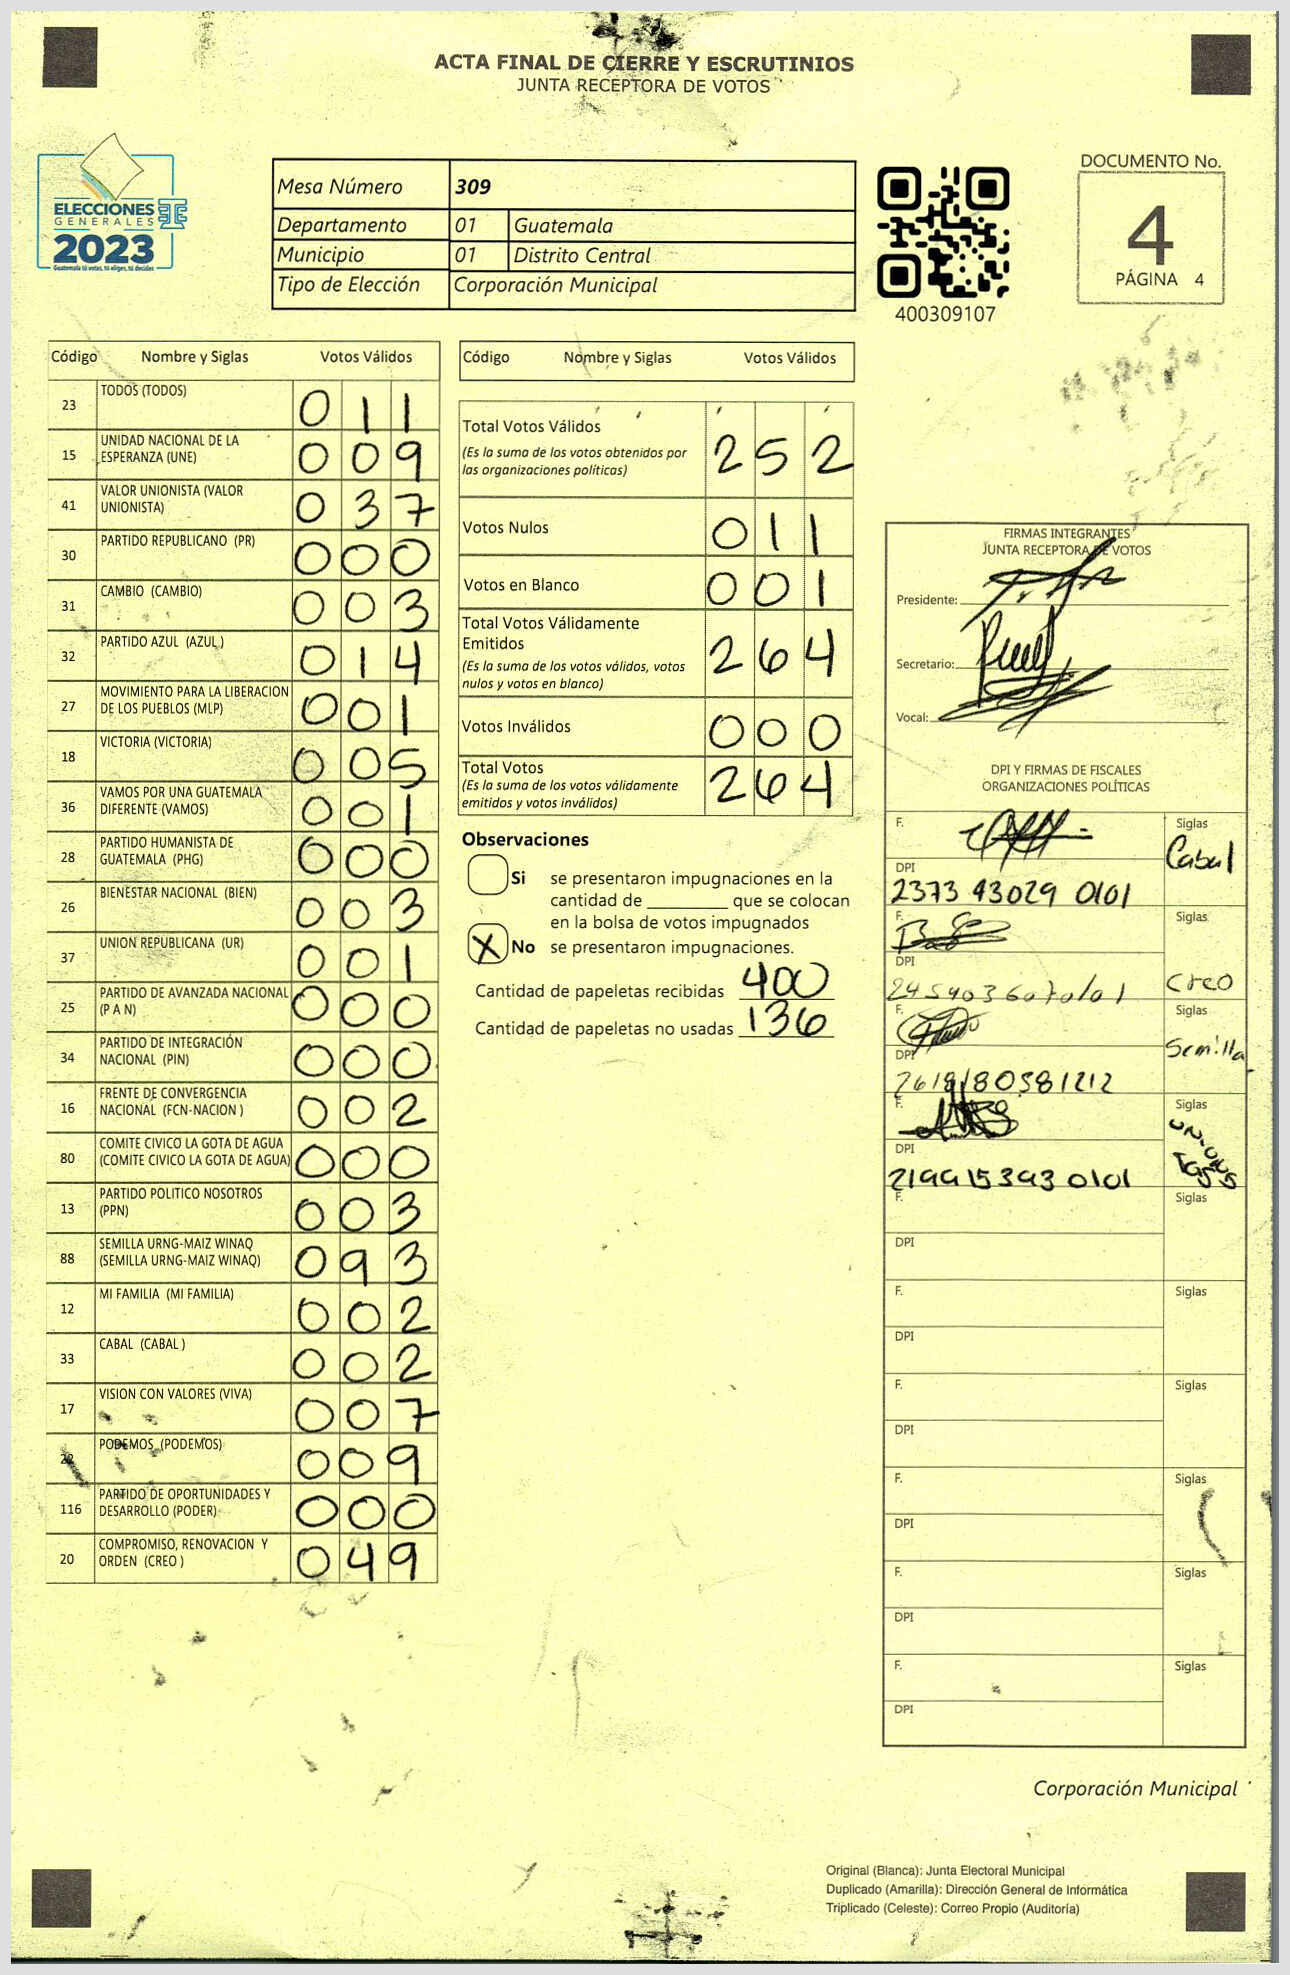 ACTA FINAL DE CIERRE Y ESCRUTINIOS
JUNTA RECEPTORA DE VOTOS
ELECCIONES
GENERALES
2023
Guatemala tú votas, tú eliges, tú decides
Mesa Número 309
Departamento 01 Guatemala
Municipio 01 Distrito Central
Tipo de Elección Corporación Municipal
400309107
DOCUMENTO No.
4
PÁGINA 4
Código Nombre y Siglas Votos Válidos
23 TODOS (TODOS) 0 1 1
15 UNIDAD NACIONAL DE LA ESPERANZA (UNE) 0 0 9
41 VALOR UNIONISTA (VALOR UNIONISTA) 0 3 7
30 PARTIDO REPUBLICANO (PR) 0 0 0
31 CAMBIO (CAMBIO) 0 0 3
32 PARTIDO AZUL (AZUL) 0 1 4
27 MOVIMIENTO PARA LA LIBERACION DE LOS PUEBLOS (MLP) 0 0 1
18 VICTORIA (VICTORIA) 0 0 5
36 VAMOS POR UNA GUATEMALA DIFERENTE (VAMOS) 0 0 1
28 PARTIDO HUMANISTA DE GUATEMALA (PHG) 0 0 0
26 BIENESTAR NACIONAL (BIEN) 0 0 3
37 UNION REPUBLICANA (UR) 0 0 1
25 PARTIDO DE AVANZADA NACIONAL (P A N) 0 0 0
34 PARTIDO DE INTEGRACIÓN NACIONAL (PIN) 0 0 0
16 FRENTE DE CONVERGENCIA NACIONAL (FCN-NACION) 0 0 2
80 COMITE CIVICO LA GOTA DE AGUA (COMITE CIVICO LA GOTA DE AGUA) 0 0 0
13 PARTIDO POLITICO NOSOTROS (PPN) 0 0 3
88 SEMILLA URNG-MAIZ WINAQ (SEMILLA URNG-MAIZ WINAQ) 0 9 3
12 MI FAMILIA (MI FAMILIA) 0 0 2
33 CABAL (CABAL) 0 0 2
17 VISION CON VALORES (VIVA) 0 0 7
22 PODEMOS (PODEMOS) 0 0 9
116 PARTIDO DE OPORTUNIDADES Y DESARROLLO (PODER) 0 0 0
20 COMPROMISO, RENOVACION Y ORDEN (CREO) 0 4 9
Código Nombre y Siglas Votos Válidos
Total Votos Válidos 2 5 2
(Es la suma de los votos obtenidos por
las organizaciones políticas)
Votos Nulos 0 1 1
Votos en Blanco 0 0 1
Total Votos Válidamente
Emitidos 2 6 4
(Es la suma de los votos válidos, votos
nulos y votos en blanco)
Votos Inválidos 0 0 0
Total Votos 2 6 4
(Es la suma de los votos válidamente
emitidos y votos inválidos)
Observaciones
Si se presentaron impugnaciones en la
cantidad de ________ que se colocan
en la bolsa de votos impugnados
X No se presentaron impugnaciones.
Cantidad de papeletas recibidas 400
Cantidad de papeletas no usadas 136
FIRMAS INTEGRANTES
JUNTA RECEPTORA DE VOTOS
Presidente:
Secretario:
Vocal:
DPI Y FIRMAS DE FISCALES
ORGANIZACIONES POLÍTICAS
F. Siglas
Cabal
DPI
2373 43029 0101
F. Siglas
Creo
DPI
2454036070101
F. Siglas
Semilla
DPI
2618180581212
F. Siglas
DPI
219915393 0101
F. Siglas
DPI
F. Siglas
DPI
F. Siglas
DPI
F. Siglas
DPI
F. Siglas
DPI
F. Siglas
DPI
Corporación Municipal
Original (Blanca): Junta Electoral Municipal
Duplicado (Amarilla): Dirección General de Informática
Triplicado (Celeste): Correo Propio (Auditoría)